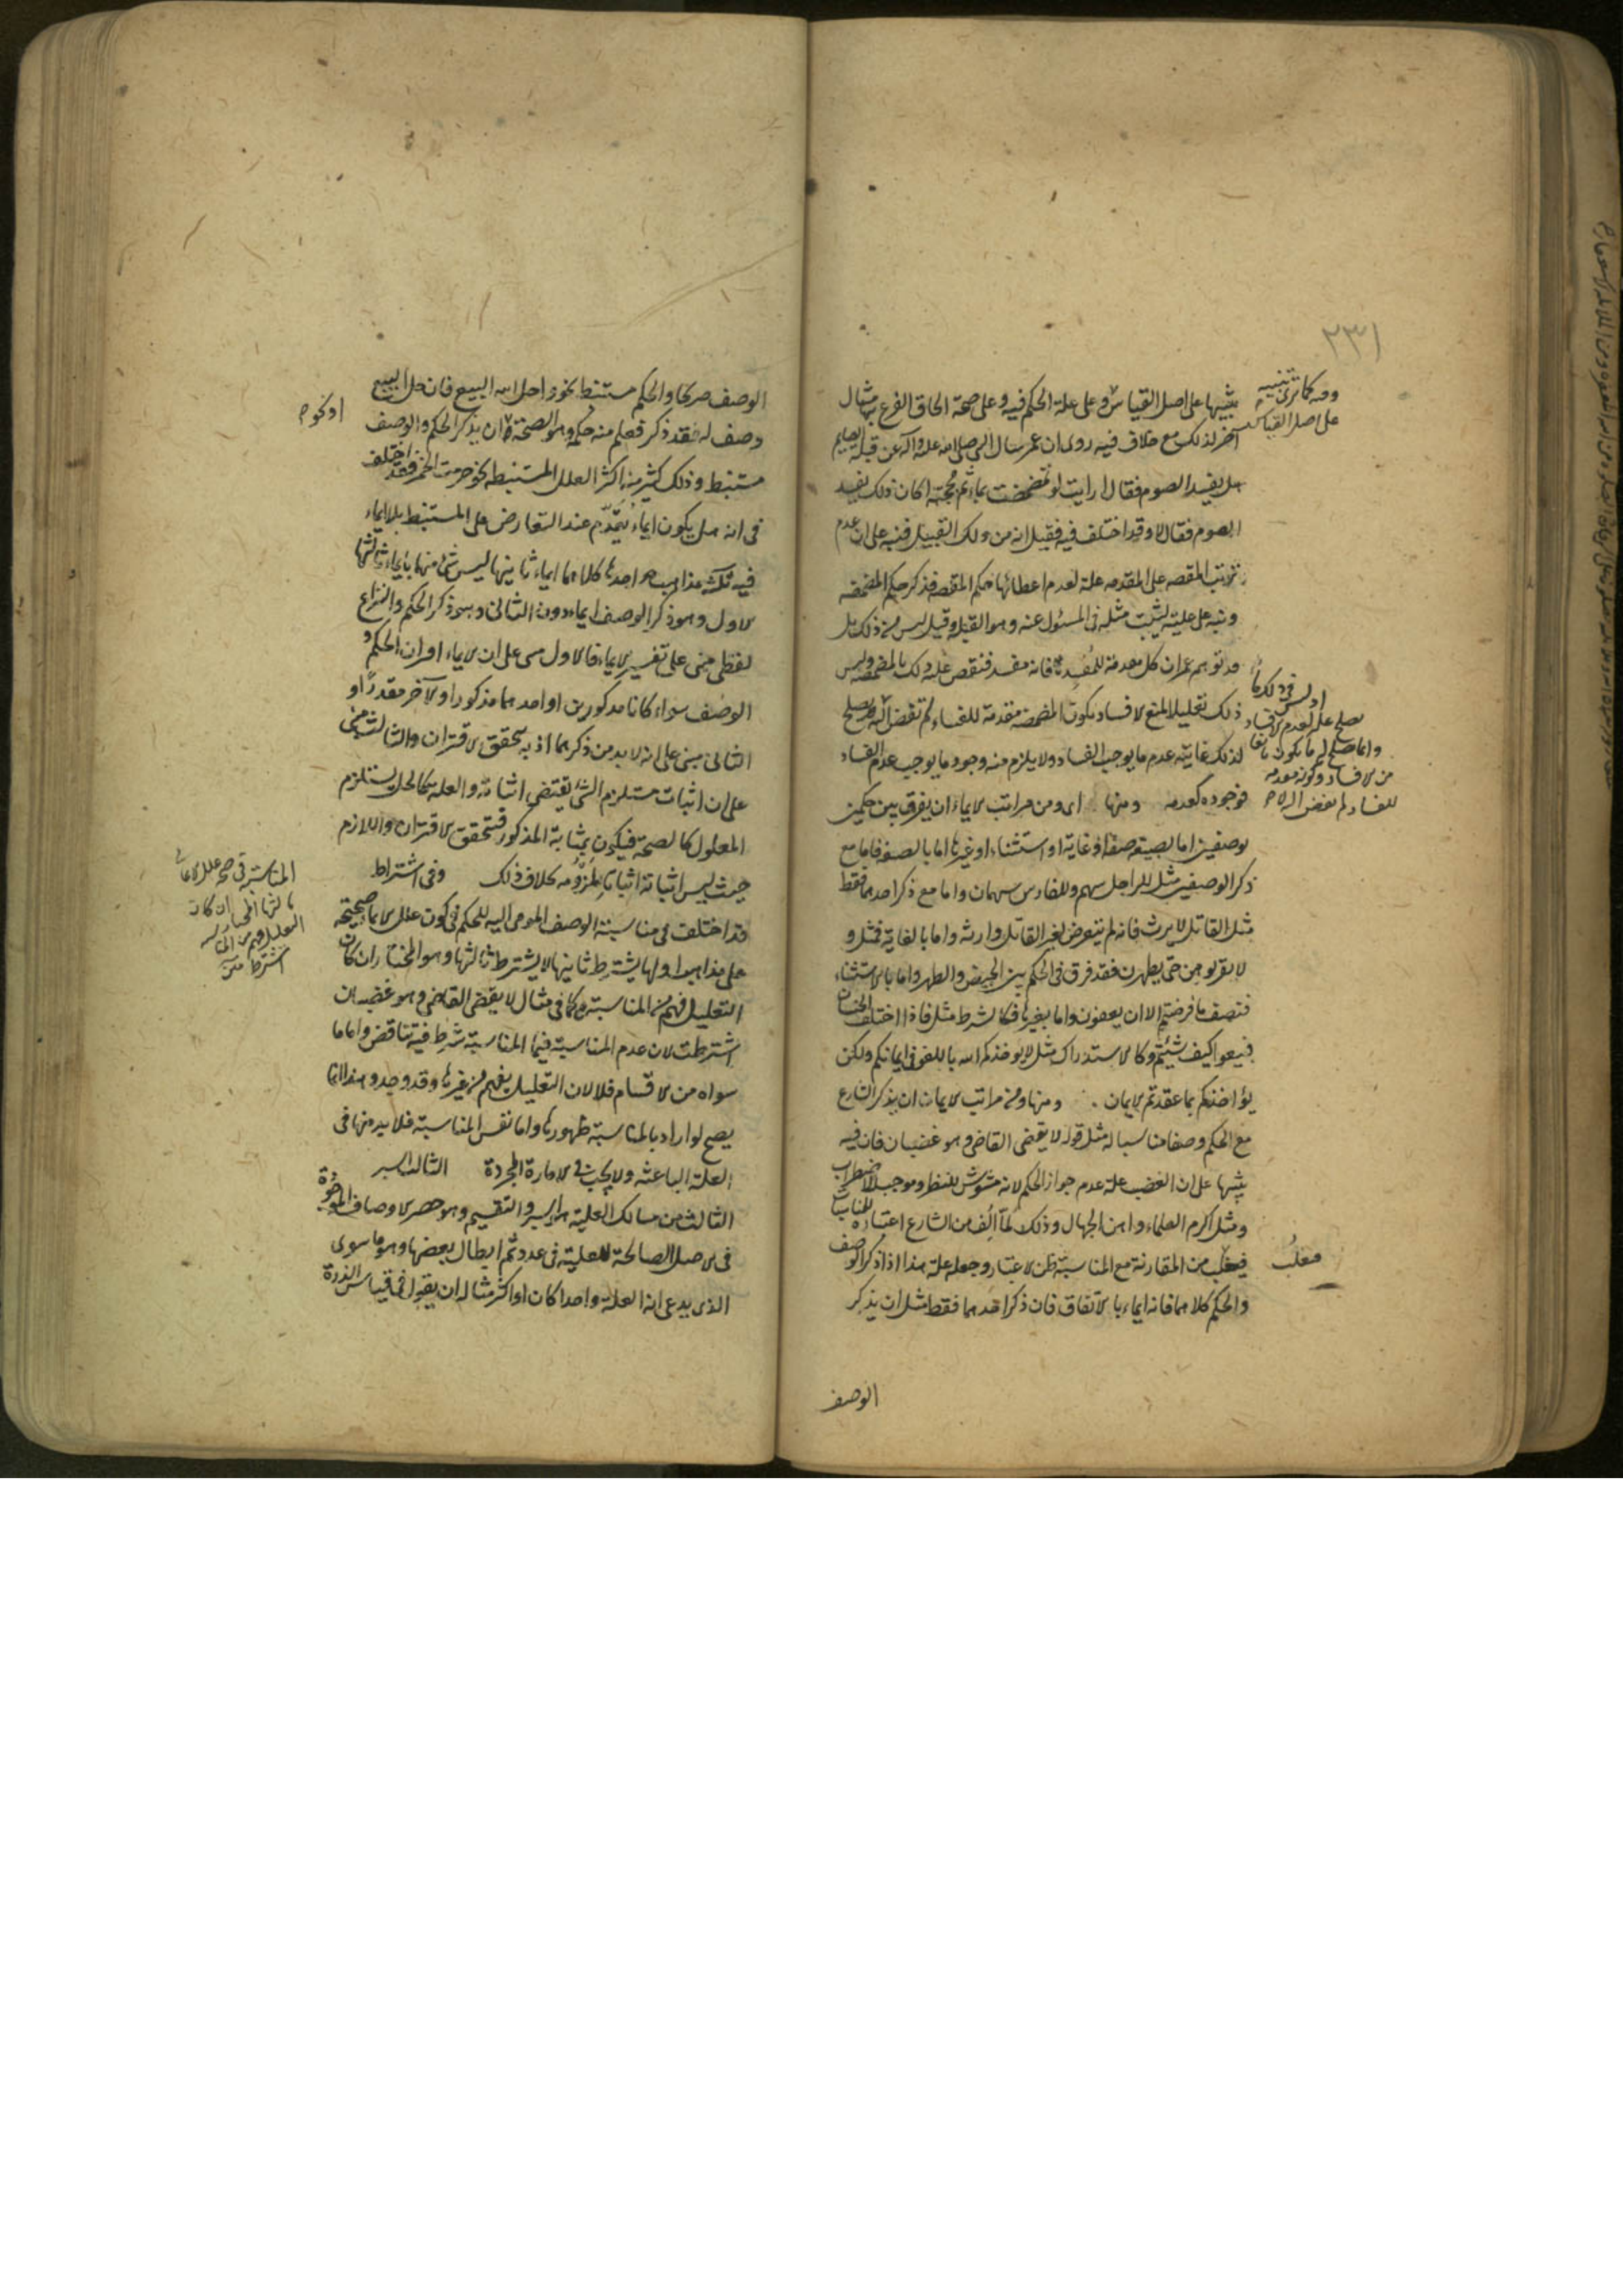 ٢٣١
وفيه كما ترى تنبيه
على اصل القياس
تنبيها على اصل القياس وعلى علة الحكم فيه وعلى صحة الحاق الفرع بها مثال
آخر لذلك مع خلاف فيه روى ان عمر سال النبى صلى الله عليه وآله عن قبلة الصايم
هل يفسد الصوم فقال ارايت لو تمضمضت بماء ثم مججته اكان ذلك يفسد
الصوم فقال لا وقد اختلف فيه فقيل انه من ذلك القبيل فنبه على ان عدم
ترتب المقصد على المقدمه علة لعدم اعطائها حكم المقصد فذكر حكم المضمضه
ونبه على عليته ليثبت مثله فى المسئول عنه وهو القبله وقيل ليس من ذلك بل
قد توهم عمر ان كل مقدمة للمفسد فانه مفسد فنقص عليه ذلك بالمضمضه وليس
ذلك تعليلا لمنع الافساد بكون المضمضه متقدمة للفساد لم تفض اليه يصلح
لذلك غايته عدم ما يوجب الفساد ولا يلزم منه وجود ما يوجب عدم الفساد
فوجوده كعدمه ومنها اى ومن مراتب الايماء ان يفرق بين حكمين
بوصفين اما بصيغه صفة او غاية او استثناء او غيرها اما بالصفه فاما مع
ذكر الوصفين مثل للراجل سهم وللفارس سهمان واما مع ذكر احدهما فقط
مثل القاتل لا يرث فانه لم يتعرض لغير القاتل وارثه واما بالغاية فمثل و
لا تقربوهن حتى يطهرن فقد فرق فى الحكم بين الحيض والطهر واما بالاستثناء
فنصف ما فرضتم الا ان يعفون واما بغيرها فكالشرط مثل فاذا اختلف الجنسان
فبيعوا كيف شئتم وكالاستدراك مثل لا يؤاخذكم الله باللغو فى ايمانكم ولكن
يؤاخذكم بما عقدتم الايمان . ومنها ومن مراتب الايماء ان يذكر الشارع
مع الحكم وصفا مناسبا له مثل قوله لا يقضى القاضى وهو غضبان فان فيه
تنبيها على ان الغضب علة عدم جواز الحكم لانه مشوش للنظر وموجب للاضطراب
ومثل اكرم العلماء واهن الجهال وذلك لما الف من الشارع اعتباره للمناسبات
فيغلب من المقارنة مع المناسبة ظن الاعتبار وجعله علة هذا اذا ذكر الوصف
والحكم كلاهما فانه ايماء بالاتفاق فان ذكر احدهما فقط مثل ان يذكر
الوصف
او ليس فى ذلك ما
يصلح علة لعدم الافساد
وانما يصلح له ما يكون مانعا
من الافساد وكونه مقدمه
للفساد لم يفض اليه لا
فغلب
الوصف صريحا والحكم مستنبط نحو احل الله البيع فان حل البيع
وصف له فقد ذكر فعلم منه حكمه وهو الصحة او ان يذكر الحكم والوصف
مستنبط وذلك كثير منه اكثر العلل المستنبطه نحو حرمت الخمر فقد اختلف
فى انه هل يكون ايماء يقدم عند التعارض على المستنبط بلا ايماء
فيه ثلثة مذاهب احدها كلاهما ايماء ثانيها ليس شئ منها بايماء ثالثها
الاول وهو ذكر الوصف ايماء دون الثانى وهو ذكر الحكم والنزاع
لفظى مبنى على تفسير الايماء فالاول مبنى على ان الايماء اقتران الحكم و
الوصف سواء كانا مذكورين او احدهما مذكورا والآخر مقدرا و
الثانى مبنى على انه لا بد من ذكرهما اذ به يتحقق الاقتران والثالث مبنى
على ان اثبات مستلزم الشئ يقتضى اثباته والعله كالحل يستلزم
المعلول كالصحة فيكون بمثابة المذكور فتحقق الاقتران واللازم
حيث ليس اثباته اثباتا لملزومه بخلاف ذلك وفى اشتراط
قد اختلف فى مناسبة الوصف المومى اليه للحكم فى كون علل الايماء صحيحة
على مذاهب اولها يشترط ثانيها لا يشترط ثالثها وهو المختار ان كان
التعليل فهم من المناسبة كما فى مثال لا يقضى القاضى وهو غضبان
اشترطت لان عدم المناسبة فيما المناسبة شرط فيه تناقض واما ما
سواه من الاقسام فلا لان التعليل يفهم من غيرها وقد وجد وهذا انما
يصح لو اراد بالمناسبة ظهورها واما نفس المناسبة فلا بد منها فى
العلة الباعثه ولا يجب فى الامارة المجردة الثالث السبر
الثالث من مسالك العلية هو السبر والتقسيم وهو حصر الاوصاف الموجودة
فى الاصل الصالحة للعلية فى عدد ثم ابطال بعضها وهو ما سوى
الذى يدعى انه العلة واحدا كان او اكثر مثاله ان يقول فى قياس الذرة
المناسبة فى صحة علل الايماء
ثالثها المختار ان كان
التعليل فهم من المناسبة
اشترطت